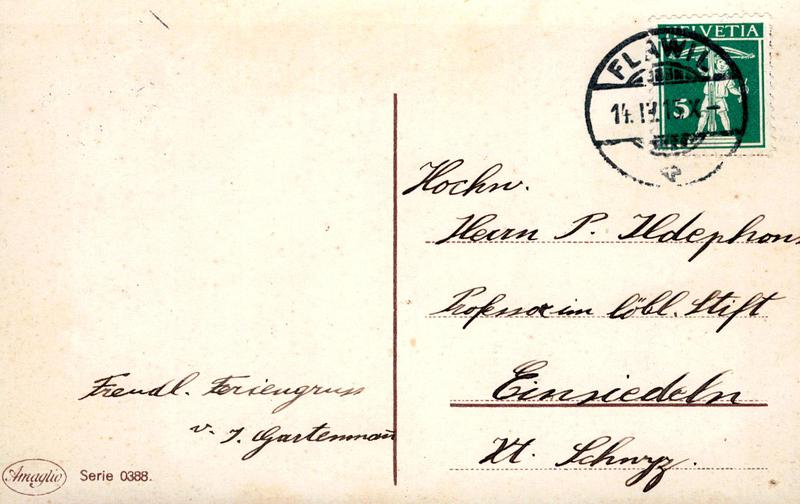 HELVETIA
5
FLAWIL
14. IV. 15. X-
Hochw.
Herrn P. Ildephons
Professor im löbl. Stift
Einsiedeln
Kt. Schwyz.
Freudl. Feriengruss
v. J. Gartenmann
Amaglio Serie 0388.